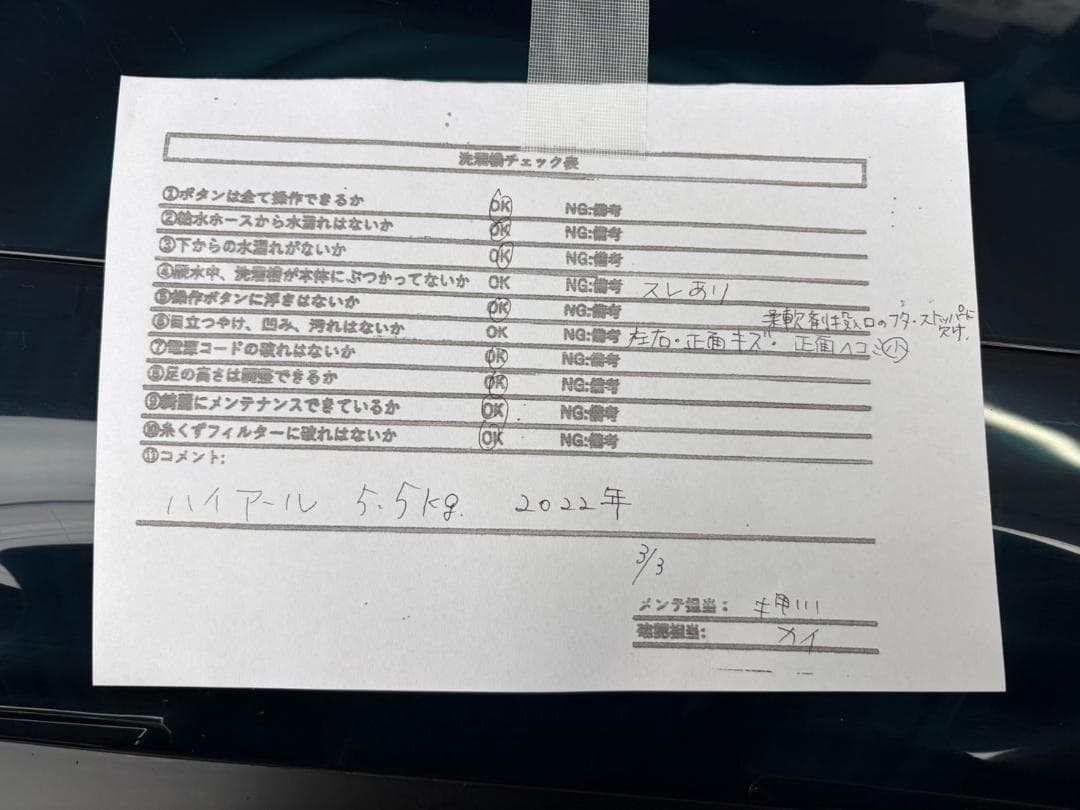 洗濯機チェック表
①ボタンは全て操作できるか OK NG:備考
②給水ホースから水漏れはないか OK NG:備考
③下からの水漏れがないか OK NG:備考
④脱水中、洗濯槽が本体にぶつかってないか OK NG:備考 スレあり
⑤操作ボタンに浮きはないか OK NG:備考
柔軟剤投入口のフタ・ストッパーに欠け.
⑥目立つやけ、凹み、汚れはないか OK NG:備考 左右・正面キズ・正面ヘコミ小
⑦電源コードの破れはないか OK NG:備考
⑧足の高さは調整できるか OK NG:備考
⑨綺麗にメンテナンスできているか OK NG:備考
⑩糸くずフィルターに破れはないか OK NG:備考
⑪コメント:
ハイアール 5.5kg. 2022年
3/3
メンテ担当:
確認担当: カイ